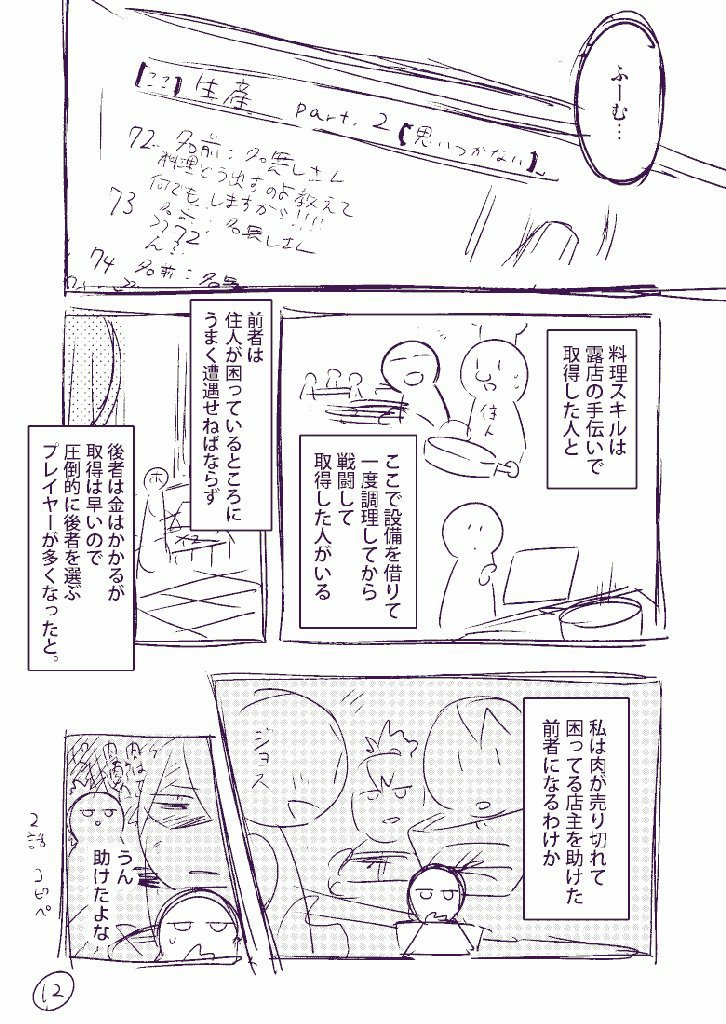 ふーむ…
【ここ】生産 part.2【思いつかない】
72. 名前：名無しさん
料理どう出すのよ教えて
何でもしますが!!!!
73 名前：名無しさん
>>72
ん?
74 名前：名無
料理スキルは
露店の手伝いで
取得した人と
住人
ここで設備を借りて
一度調理してから
戦闘して
取得した人がいる
前者は
住人が困っているところに
うまく遭遇せねばならず
後者は金はかかるが
取得は早いので
圧倒的に後者を選ぶ
プレイヤーが多くなったと。
私は肉が売り切れて
困ってる店主を助けた
前者になるわけか
ジョズ
うん
助けたよな…
2話
コピペ
12